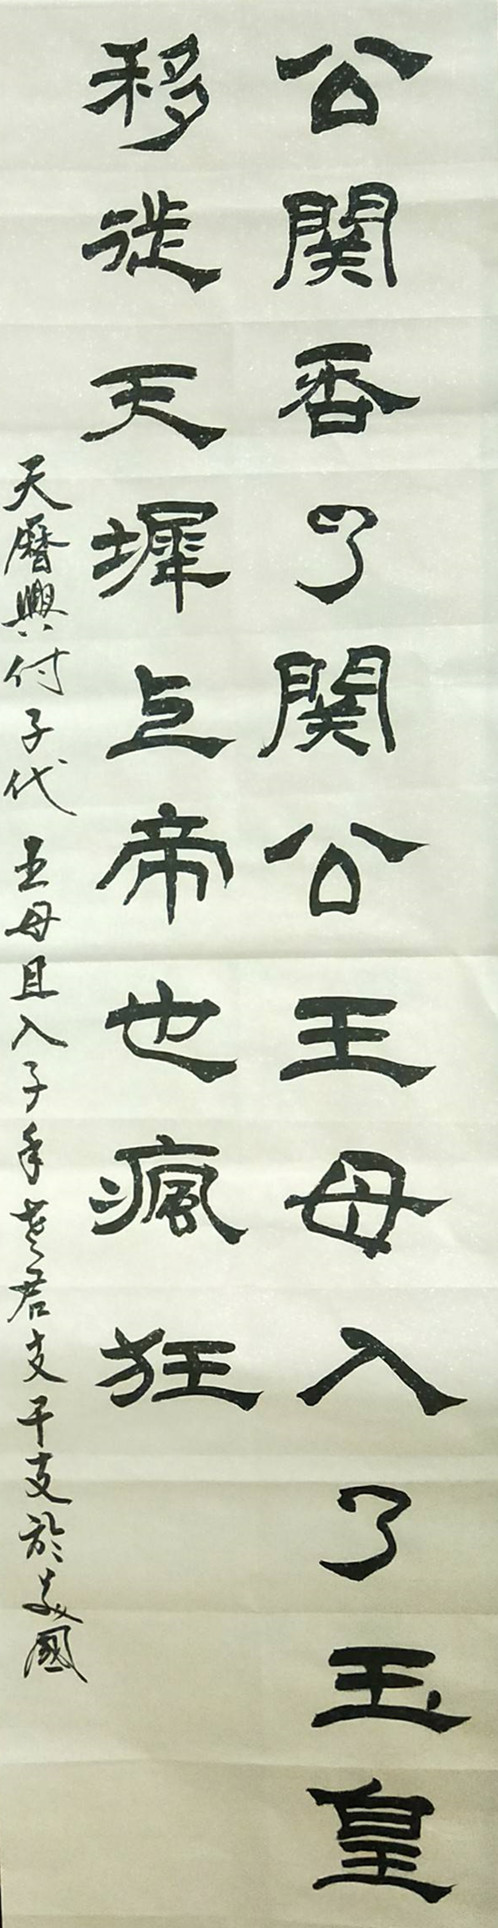 公關香了關公王母入了玉皇
移徙天墀上帝也瘋狂
天曆興付子代 王母且入子手老君支干支於美國